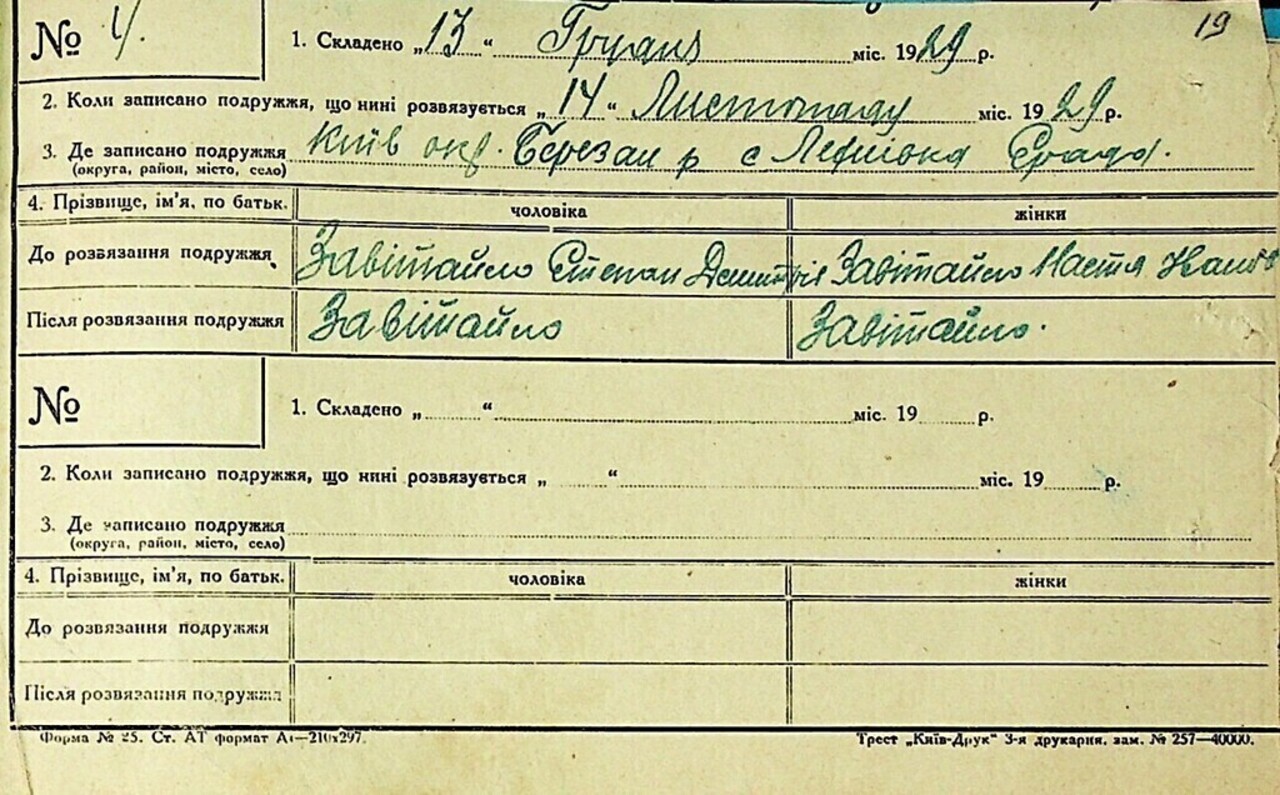 19
№ 4. 1. Складено „13“ Грудня міс. 1929 р.
2. Коли записано подружжя, що нині розвязується „14“ Листопаду міс. 1929 р.
3. Де записано подружжя Київ окр. Березан р с Лехнівка
(округа, район, місто, село)
4. Прізвище, ім'я, по батьк. чоловіка жінки
До розвязання подружжя Завітайло Степан Дмитріє Завітайло Настя
Після розвязання подружжя Завітайло Завітайло.
№ 1. Складено „ “ міс. 19 р.
2. Коли записано подружжя, що нині розвязується „ “ міс. 19 р.
3. Де записано подружжя
(округа, район, місто, село)
4. Прізвище, ім'я, по батьк. чоловіка жінки
До розвязання подружжя
Після розвязання подружжя
Форма № 25. Ст. АТ формат А₁—210х297. Трест „Київ-Друк“ 3-я друкарня. зам. № 257—40000.